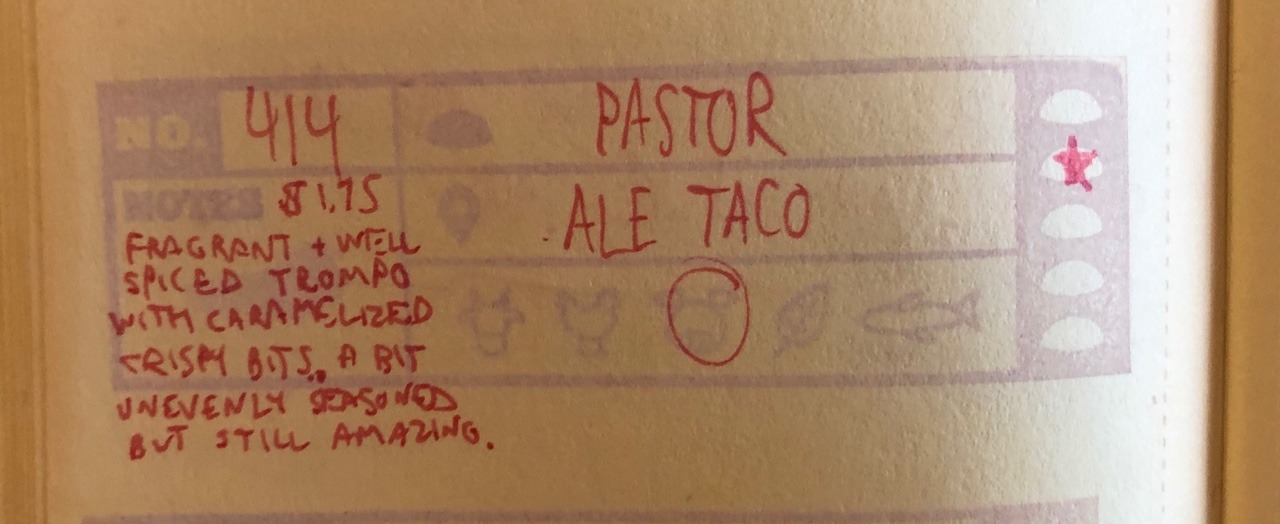 NO. 414 PASTOR
NOTES $1.75 ALE TACO
FRAGRANT + WELL
SPICED TROMPO
WITH CARAMELIZED
CRISPY BITS.. A BIT
UNEVENLY SEASONED
BUT STILL AMAZING.